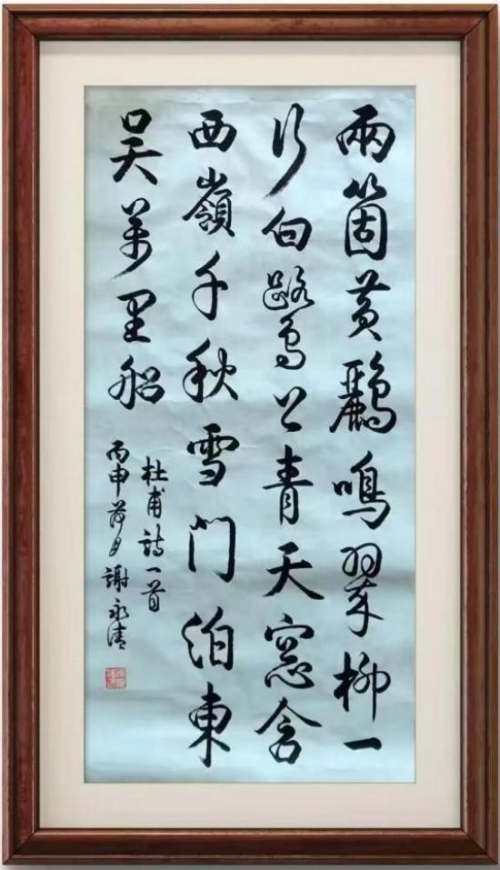 兩箇黄鸝鳴翠柳一
行白鷺上青天窓含
西嶺千秋雪門泊東
吴萬里船
杜甫詩一首
丙申荷月謝永清